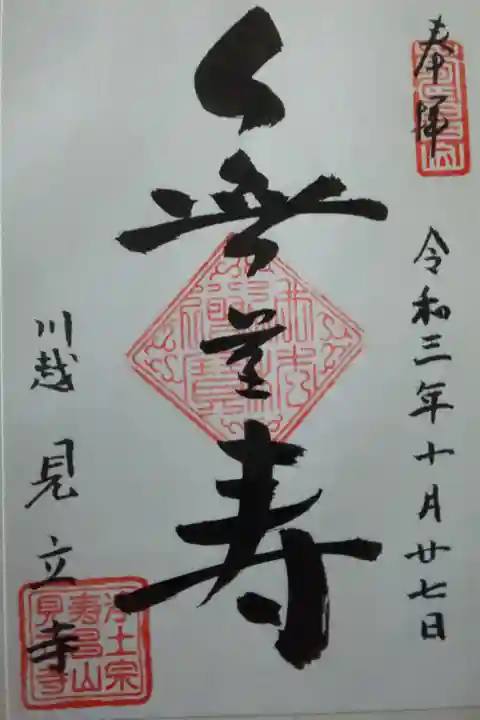 奉拝
令和三年十月廿七日
無量寿
川越 見立寺
浄土宗
壽昌山
見立寺